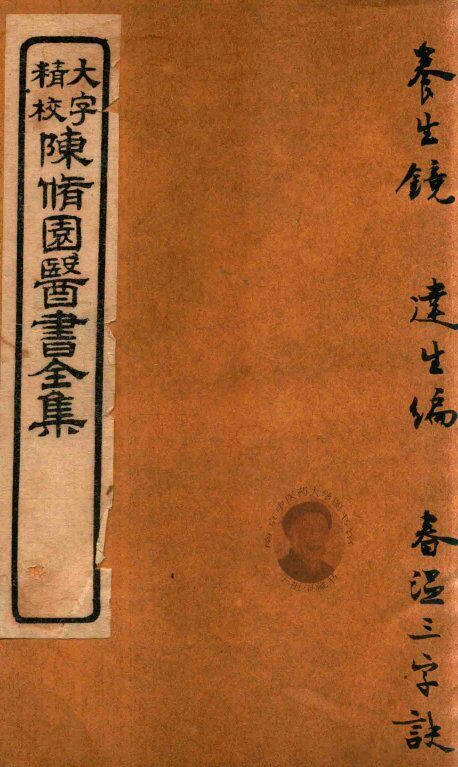 養生鏡 達生编 春温三字訣
大字精校
陳脩園醫書全集